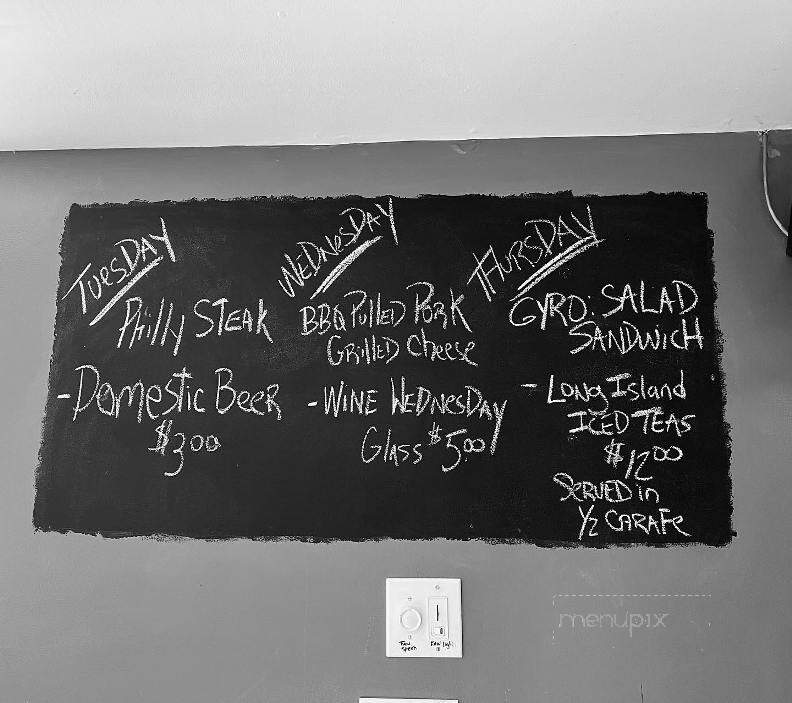 TUESDAY
Philly STEAK
-Domestic Beer
$3.00
WEDNESDAY
BBQ Pulled Pork
Grilled Cheese
-WINE WEDNESDAY
Glass $5.00
THURSDAY
GYRO: SALAD
SANDWICH
- Long Island
ICED TEAS
$12.00
SERVED in
1/2 CARAFE
menupix
Fan
speed